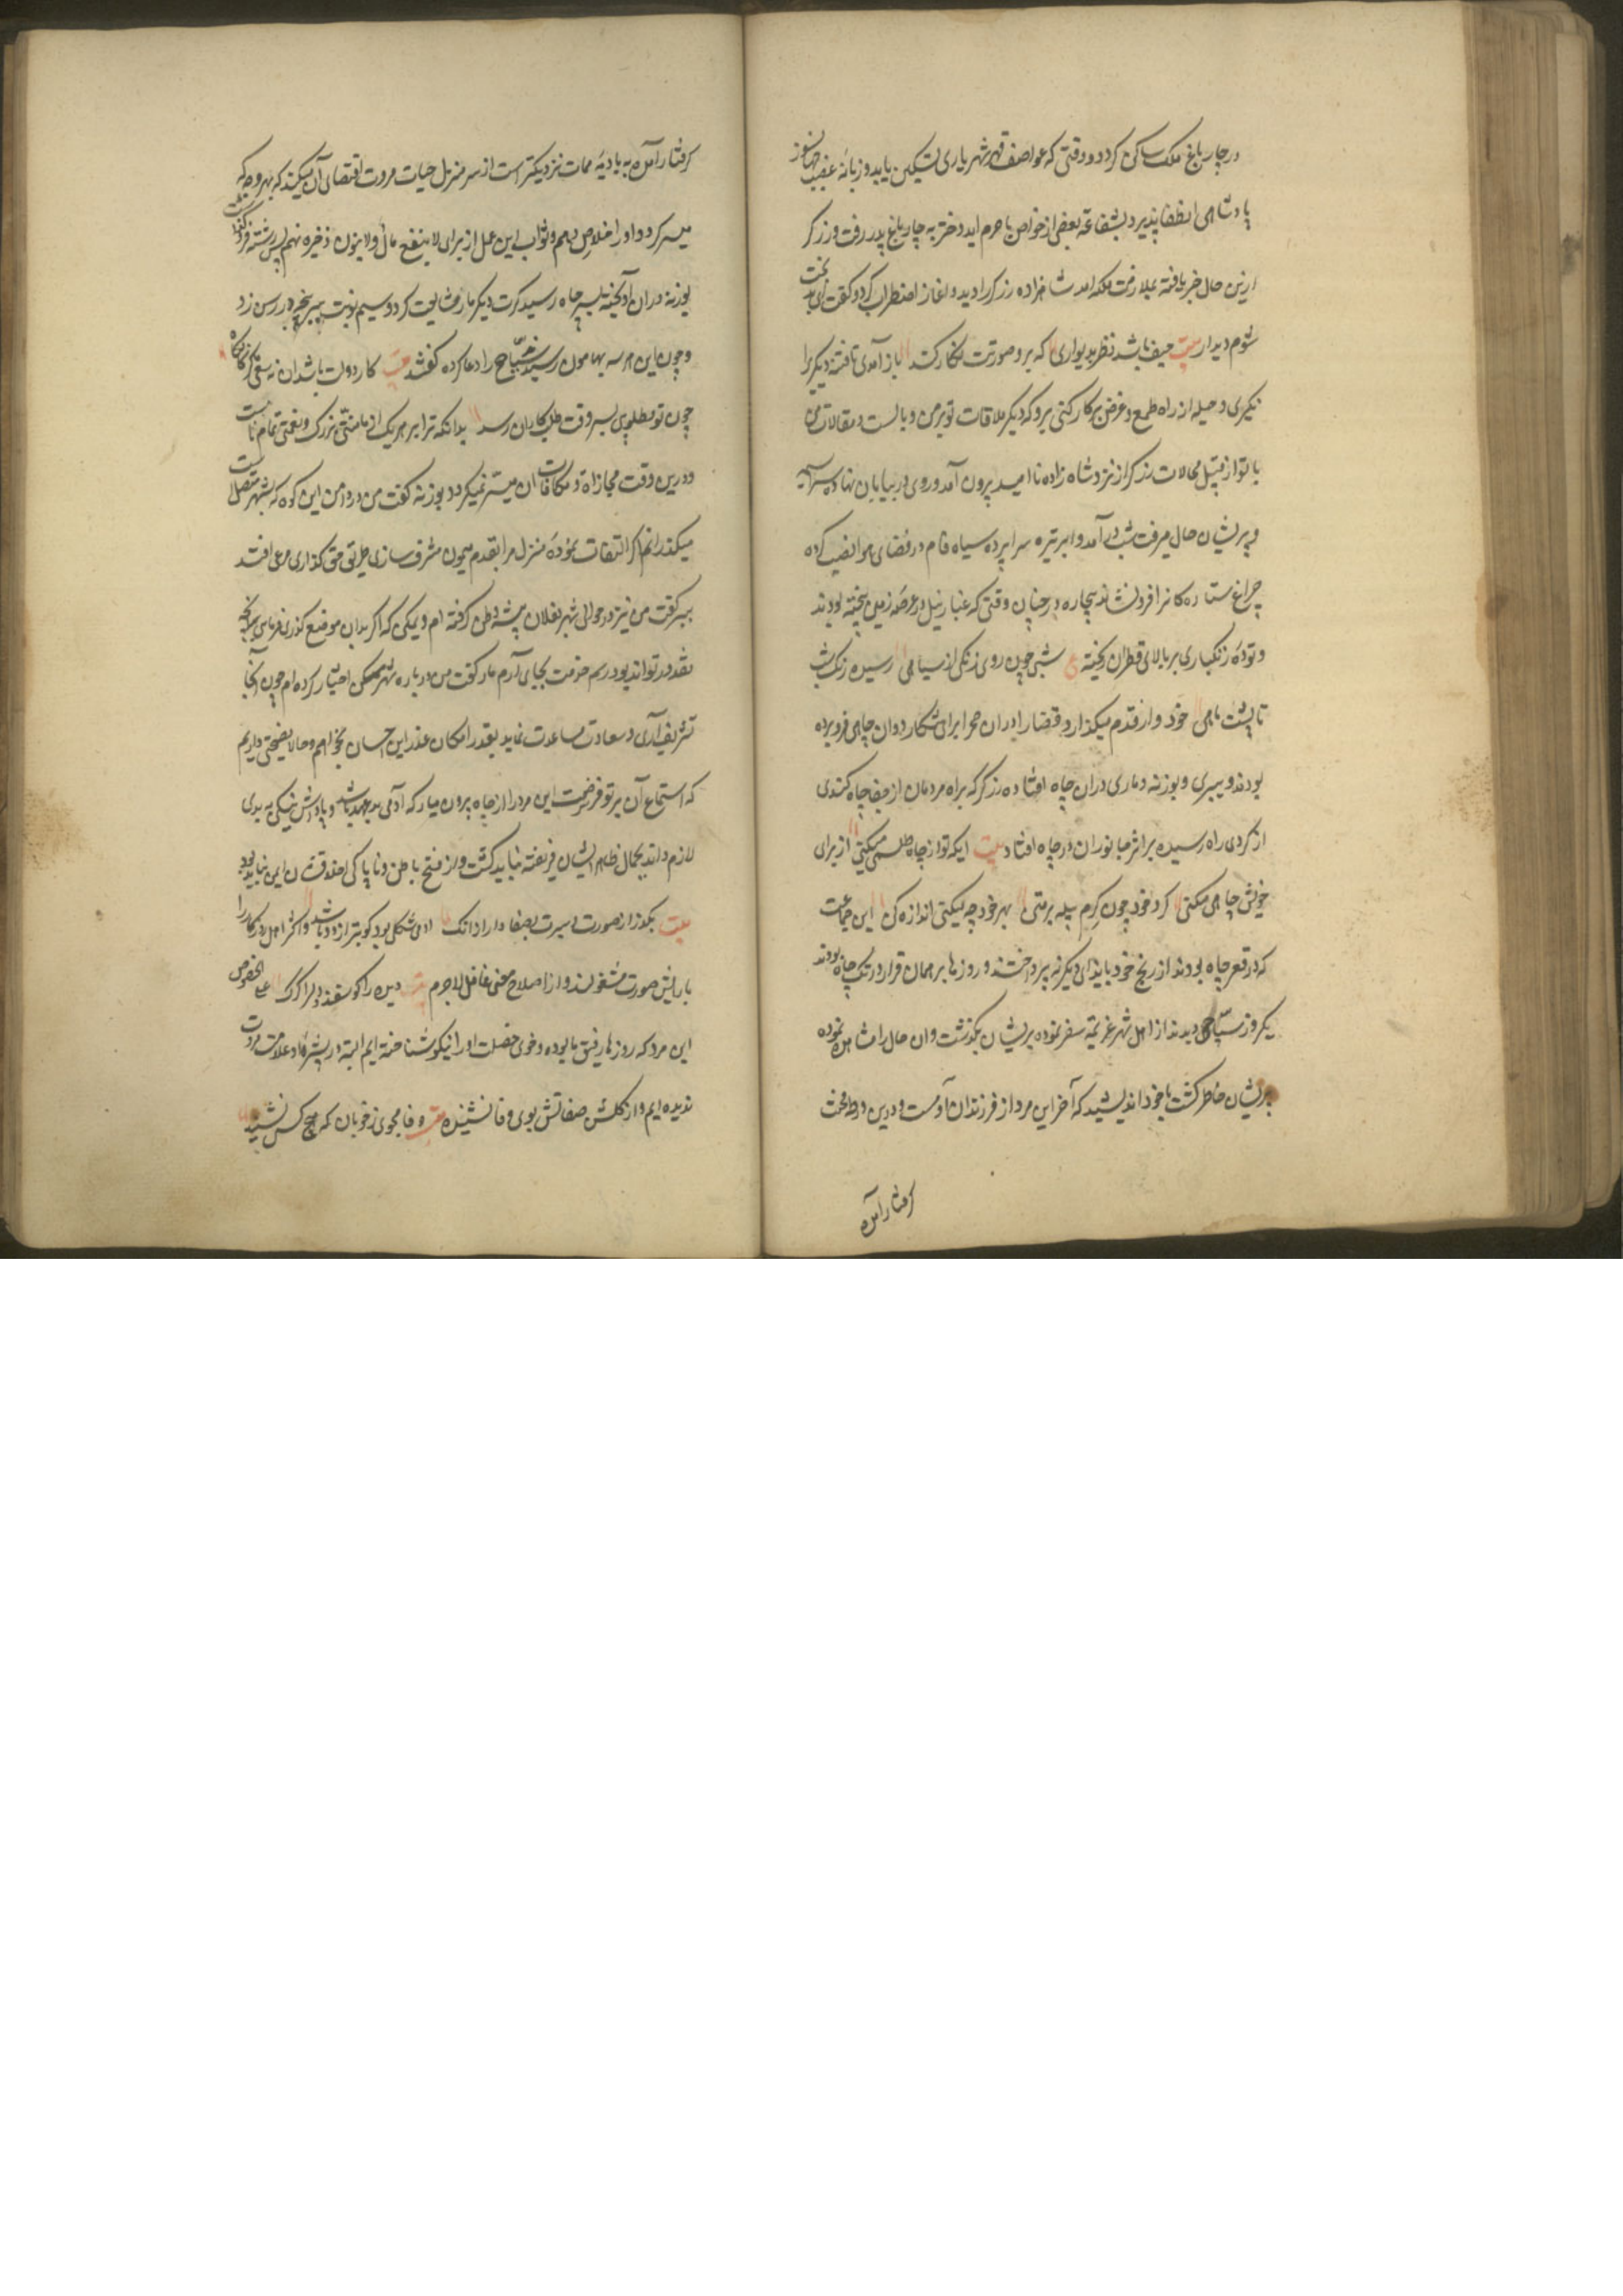 در چار باغ ملک ساکن کردد و وقتی که عواصف قهر شهریاری تسکین یابد و زبانه غضب جهانسوز
پادشاهی انطفا پذیرد بشفاعة بعضی از خواص با حرم اید دختر به چار باغ پدر رفت و زرکر
ازین حال خبر یافته بملازمت ملکه امد شاهزاده زرکر را دید و اغاز اضطراب کرد و کفت ای بد بخت
شوم دیدار بیت حیف باشد نظر بدیواری که برو صورتت نکار کند باز آمدی تا فتنه دیکر برا
نکیزی و حیله از راه طمع و غرض بر کار کنی برو که دیکر ملاقات تو بر من وبالست و مقالات من
با تو از قبیل محالات زرکر از نزد شاه زاده نا امید بیرون آمد و روی در بیابان نهاده سراسیمه
و پریشان حال میرفت شب در آمد و ابر تیره سرا پرده سیاه فام در فضای هوا نصب کرده
چراغ ستاره کانرا فرو نشاند بیچاره در چنان وقتی که غبار نیل در عرصه زمین بیخته بودند
و توده زنکباری بر بالای قطران ریخته شبی چون روی زنکی از سیاهی رسیده زنک شب
تا پشت ماهی خود وار قدم میکذارد قضا را در ان صحرا برای شکار ددان چاهی فرو برده
بودند و ببری و بوزنه و ماری دران چاه افتاده زرکر که براه مردمان از جفا چاه کندی
از کردی راه رسیده بر اثر جانوران در چاه افتاد بیت ایکه تو از چاه ظلمی میکنی از برای
خویش چاهی میکنی کرد خود چون کرم پیله برمتنی بهر خود چه میکنی اندازه کن این جماعت
که در قعر چاه بودند از رنج خود بایذای دیکر نه پرداختند و روزها بر همان قرار در تک چاه بودند
یکروز سیاحی دیدند از اهل شهر عزیمة سفر نموده بریشان بکذشت و ان حال را مشاهده نموده
پریشان خاطر کشت با خود اندیشید که آخر این مرد از فرزندان آدمست و درین ورطه محنت
کرفتار آمده
کرفتار آمده به بادیه ممات نزدیکتر است از سر منزل حیات مروت اقتضای آن میکند که بهر وجه که
میسر کردد او را خلاص دهم و ثواب این عمل از برای لا ینفع مال ولا بنون ذخیره نهم پس رشته فرو کذاشت
بوزنه دران آویخته بسر چاه رسید کرت دیکر مار مشایعت کرد و سیم نوبت ببر پنجه در رسن زد
و چون این هر سه بهامون رسیدند سیّاح را دعا کرده کفتند بیت کار دولت باشد ان نه سعی کز ناکاه
چون تو مطلوبی بسر وقت طلبکاران رسد بدانکه ترا بر هر یک از ما منتی بزرک و نعمتی تمام ثابتست
و درین وقت مجازاة و مکافات ان میسر نمیکردد بوزنه کفت من در دامن این کوه که بشهر متصل است
میکذرانم اکر التفات نموده منزل مرا بقدم میمون مشرف سازی طریق حق کذاری مرعی افتد
ببر کفت من نیز در حوالی شهر بفلان بیشه وطن کرفته ام ویمکن که اکر بدان موضع کذری فرمایی بهر آنچه
مقدور تواند بود رسم خدمت بجای آرم مار کفت من در باره شهر مسکن اختیار کرده ام چون آنجا
تشریف آری و سعادت مساعدت نماید بقدر امکان عذر این احسان بخواهم و حالا نصیحتی داریم
که استماع آن بر تو فرضست این مرد را از چاه بیرون میار که آدمی بد عهد باشد و پاداش نیکی به بدی
لازم داند بجمال ظاهر ایشان فریفته نباید کشت و از قبح باطن و ناپاکی اخلاق شان ایمن نباید بود
بیت بکذر از صورت و سیرت بصفا دار ادانک ادمی شکلی بود کو بتر از دد باشد و اکثر اهل روزکار را
بارایش صورت مشغولند و از اصلاح معنی غافل لاجرم بیت دیده را کوسفند و دل را کرک علی الخصوص
این مرد که روزها رفیق ما بوده و خوی خصلت او را نیکو شناخته ایم البته در بشره او علامت مروت
ندیده ایم و از کلشن صفاتش بوی وفا نشنیده بیت وفا مجوی ز خوبان که هیچ کس نشنید